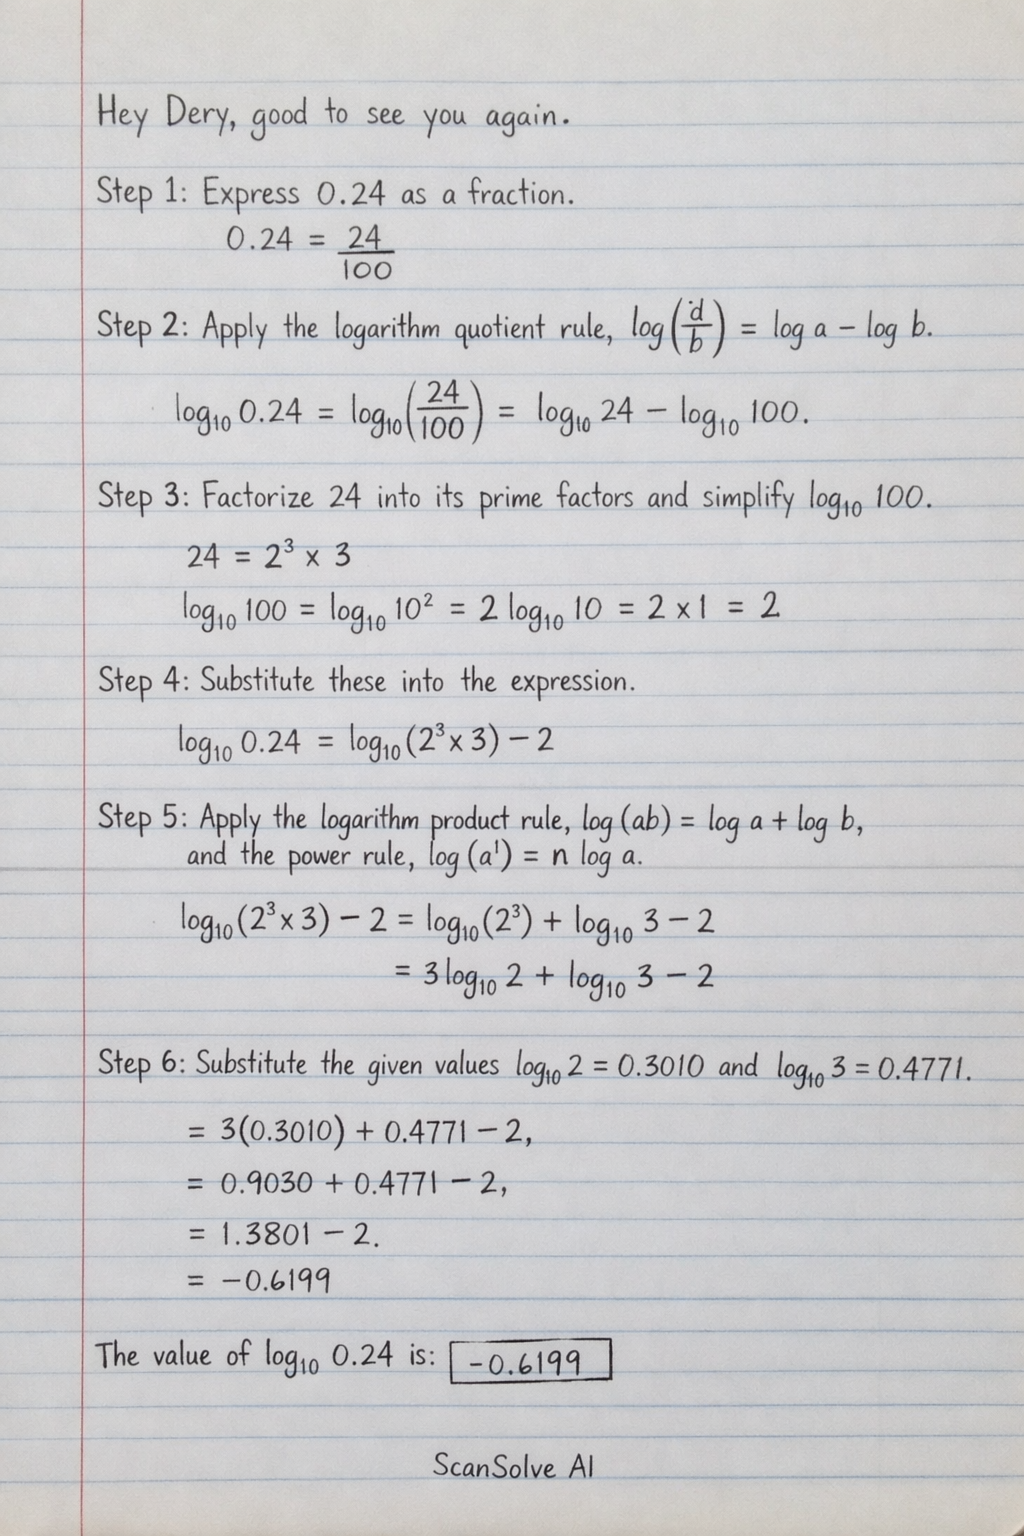 Hey Dery, good to see you again.
Step 1: Express 0.24 as a fraction.
0.24 = 24/100
Step 2: Apply the logarithm quotient rule, log(d/b) = log a − log b.
log₁₀ 0.24 = log₁₀(24/100) = log₁₀ 24 − log₁₀ 100.
Step 3: Factorize 24 into its prime factors and simplify log₁₀ 100.
24 = 2³ x 3
log₁₀ 100 = log₁₀ 10² = 2 log₁₀ 10 = 2 x 1 = 2
Step 4: Substitute these into the expression.
log₁₀ 0.24 = log₁₀(2³ x 3) − 2
Step 5: Apply the logarithm product rule, log (ab) = log a + log b,
and the power rule, log (a¹) = n log a.
log₁₀(2³ x 3) − 2 = log₁₀(2³) + log₁₀ 3 − 2
= 3 log₁₀ 2 + log₁₀ 3 − 2
Step 6: Substitute the given values log₁₀ 2 = 0.3010 and log₁₀ 3 = 0.4771.
= 3(0.3010) + 0.4771 − 2,
= 0.9030 + 0.4771 − 2,
= 1.3801 − 2.
= −0.6199
The value of log₁₀ 0.24 is: −0.6199
ScanSolve AI